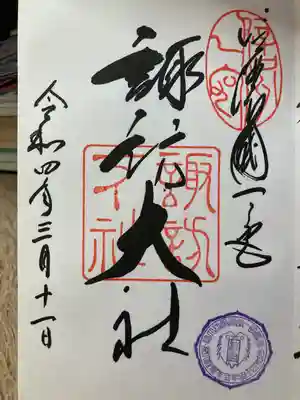 信濃國一之宮
諏訪大社
諏訪
令和四年三月十一日